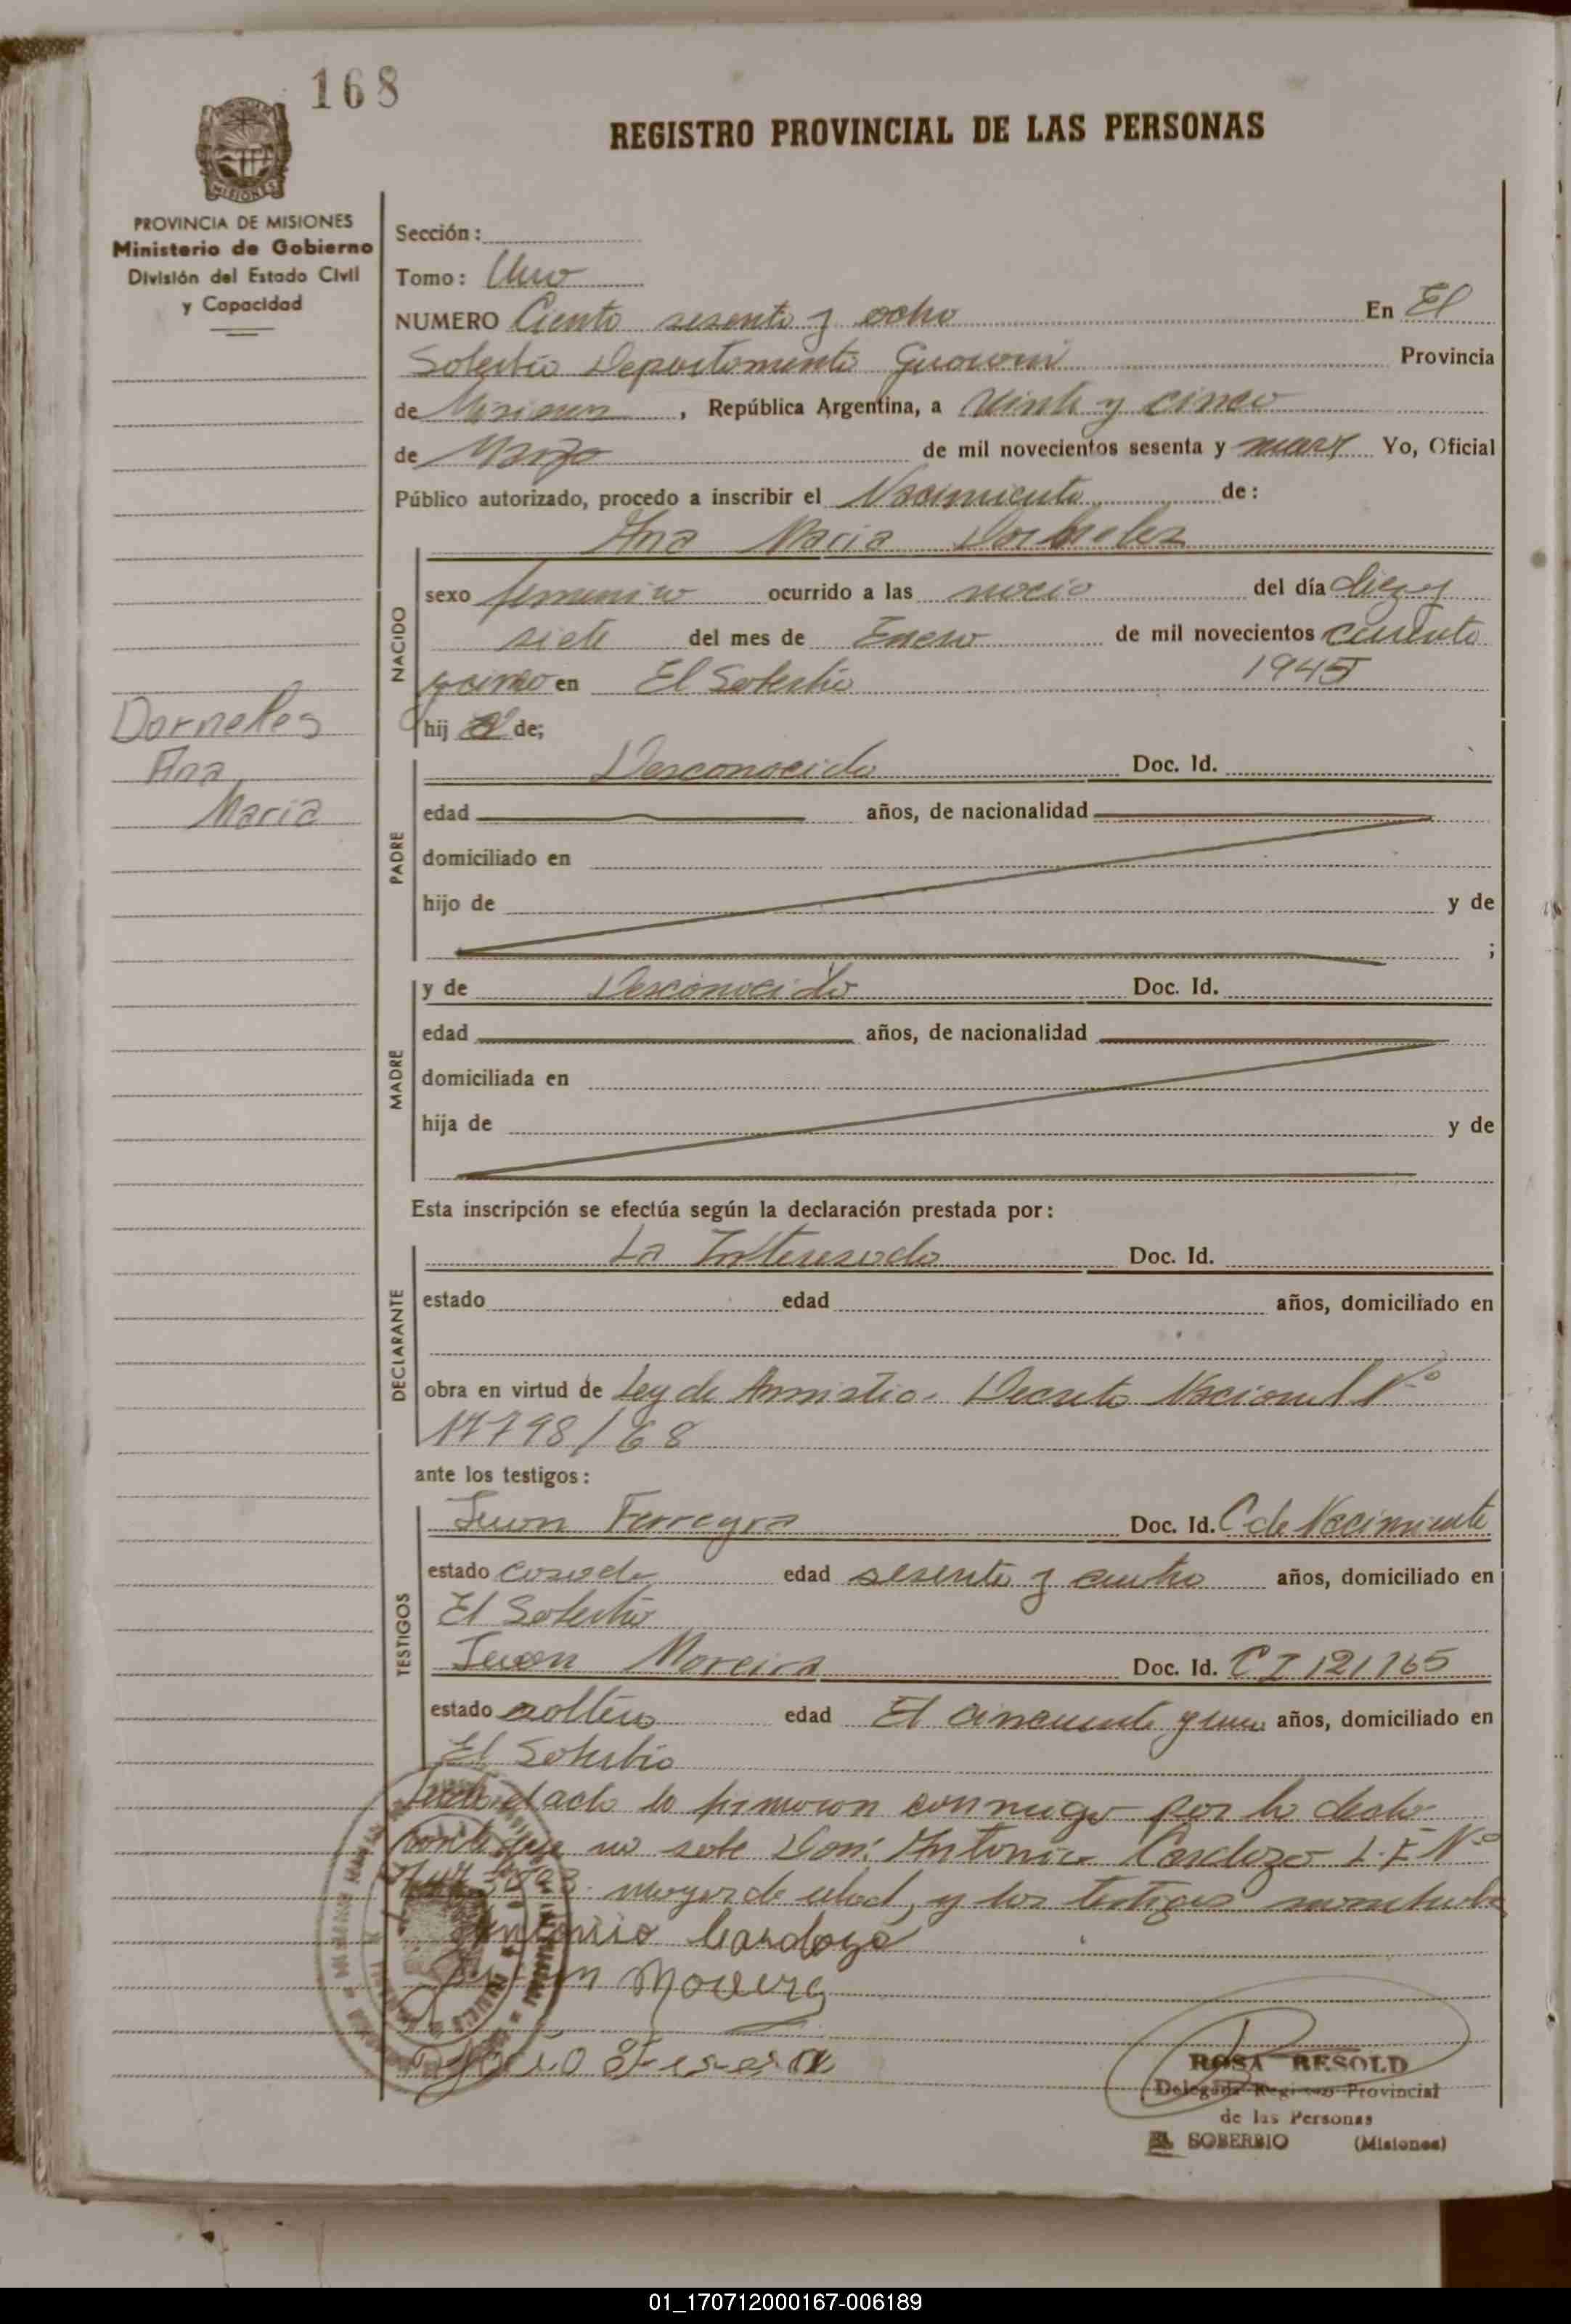 168
REGISTRO PROVINCIAL DE LAS PERSONAS
MISIONES
PROVINCIA DE MISIONES
Ministerio de Gobierno
División del Estado Civil
y Capacidad
Sección:
Tomo: Uno
NUMERO Ciento sesenta y ocho En El
Soberbio Departamento Guarani Provincia
de Misiones, República Argentina, a veinte y cinco
de Marzo de mil novecientos sesenta y nueve Yo, Oficial
Público autorizado, procedo a inscribir el Nacimiento de:
Ana Maria Dorneles
NACIDO
sexo femenino ocurrido a las del día diez y
siete del mes de Enero de mil novecientos cuarenta
y cinco en El Soberbio 1945
hij a de;
Dorneles
Ana
Maria
PADRE
Desconocido Doc. Id.
edad años, de nacionalidad
domiciliado en
hijo de y de
;
MADRE
y de Desconocido Doc. Id.
edad años, de nacionalidad
domiciliada en
hija de y de
Esta inscripción se efectúa según la declaración prestada por:
DECLARANTE
La Interesada Doc. Id.
estado edad años, domiciliado en
obra en virtud de Ley de Amnistia Decreto Nacional Nº
17798/68
ante los testigos:
TESTIGOS
Juan Ferreyra Doc. Id. C de Nacimiento
estado casado edad sesenta y años, domiciliado en
El Soberbio
Juan Moreira Doc. Id. C I 121165
estado soltero edad El cincuenta y uno años, domiciliado en
El Soberbio
acta la firmaron conmigo por la
no sabe Don: Antonio Cardozo L.E Nº
mayor de edad, y los testigos
Antonio Cardozo
Juan Moreira
ROSA RESOLD
Delegada Registro Provincial
de las Personas
EL SOBERBIO (Misiones)
01_170712000167-006189